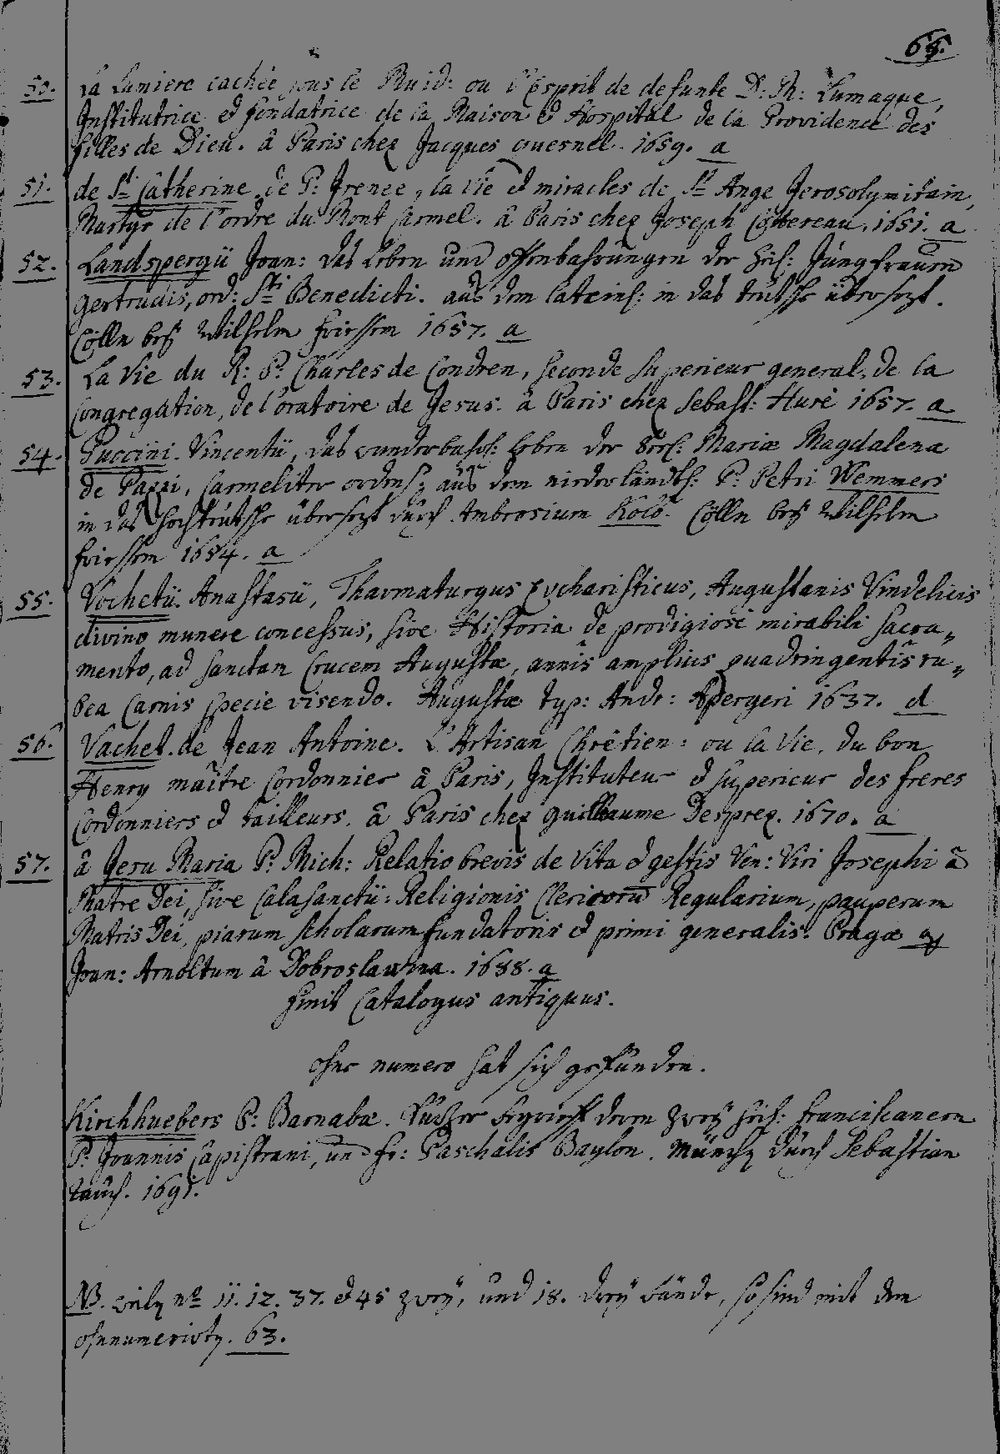 65.
50. La Lumiere cachée sous le Muid: ou l'Esprit de defunte D: M: Lumague,
Institutrice et fondatrice de la Maison et Hospital de la Providence des
filles de Dieu. â Paris chez Jacques quesnel. 1659. a
51. de St Catherine de P: Irenee, la vie et miracles de St Ange Jerosolymitain,
Martyr de l'ordre du Mont Carmel. â Paris chez Joseph Cottereau. 1651. a
52. Landspergii Joan: das Leben und offenbahrungen der heil: Jungfrauen
Gertrudis, ord: Sti Benedicti. aus dem lateinis: in das teutsche übersezt.
Cölln beÿ Wilhelm friessem 1657. a
53. La Vie du R: P: Charles de Condren, seconde superieur general, de la
Congregation, de l'oratoire de Jesus. â Paris chez Sebast: Huré 1657. a
54. Puccini Vincentii, das wunderbahrl: Leben der Seel: Mariæ Magdalena
de Pazzi, Carmeliter ordens; aus dem niederländis: P: Petri Wemmers
in das Hochteutsche übersezt durch Ambrosium Kolb. Cölln beÿ Wilhelm
friessem 1654. a
55. Vochetii Anastasii, Thavmaturgus Evcharisticus, Augustanis Vindelicis
divino munere concessus, sive Historia de prodigiose mirabili sacra„
mento, ad sanctam Crucem Augustæ, annis amplius quadringentis ru„
bea Carnis specie visendo. Augustæ typ: Andr: Apergeri 1637. d
56. Vachet de Jean Antoine. L'Artisan Chrêtien: ou la Vie, du bon
Henry maître Cordonnier â Paris, Instituteur et superieur des freres
Cordonniers et tailleurs. â Paris chez guillaume Desprez. 1670. a
57. â Jesu Maria P: Mich: Relatio brevis de Vita et gestis Ven: Viri Josephi â
Matre Dei, sive Calasanctii: Religionis Clericorū Regularium, pauperum
Matris Dei, piarum scholarum fundatoris et primi generalis. Pragæ ap
Joan: Arnoltum â Dobroslawina. 1688. a
finit Catalogus antiquus.
ohne numero hat sich gefunden.
Kirchhuebers P: Barnabæ. Kurzer begriff deren zweÿ heil: franciscanern
P: Joannis Capistrani, und fr: Paschalis Baylon. München durch Sebastian
rauch. 1691.
NB. weilen no 11. 12. 37. et 45 zweÿ, und 18. dreÿ bände, so sind mit dem
ohnnumerirten. 63.